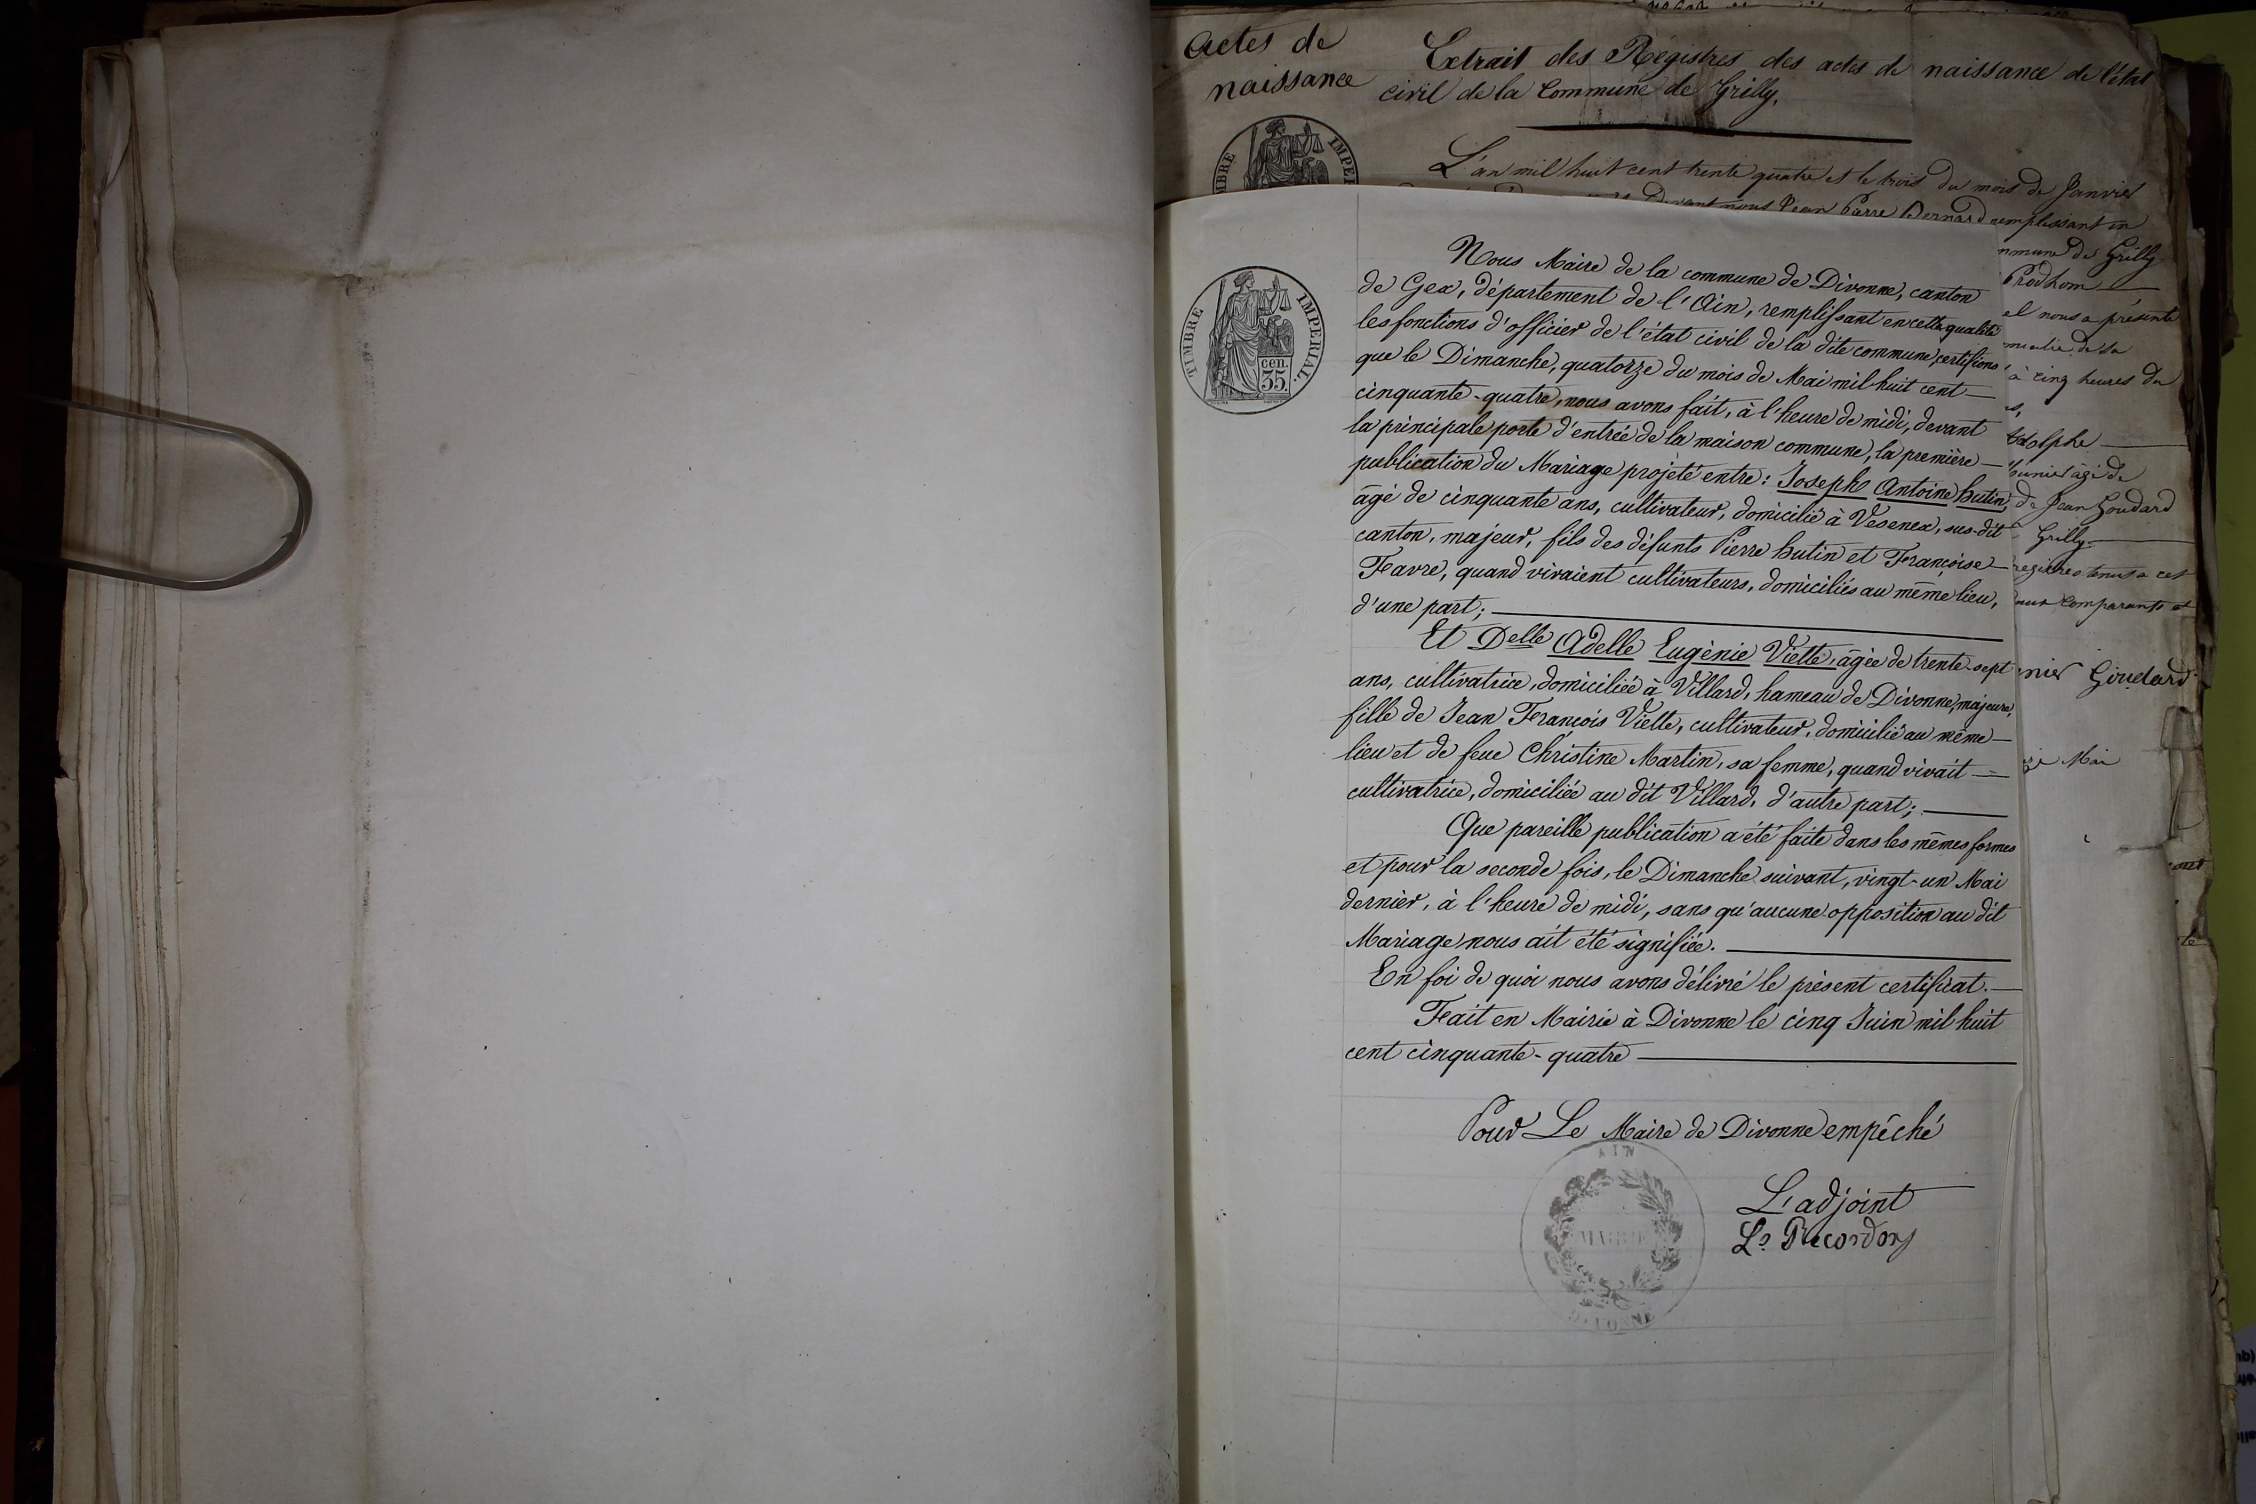 Actes de
naissance
Extrait des Régistres des actes de naissance de l'état
civil de la Commune de Grilly.
L'an mil huit cent trente quatre et le trois du mois de Janvier
Devant nous Jean Pierre Bernard remplissant en
Grilly
Prodhom
el nous a présenté
à cinq heures du
Adolphe
âgé de
de Jean Goudard
Grilly
registres tenus à cet
comparants et
nier Goudard
Mai
TIMBRE IMPERIAL.
cen.
35.
Nous Maire de la commune de Divonne, canton
de Gex, département de l'Ain, remplissant en cette qualité
les fonctions d'officier de l'état civil de la dite commune, certifions
que le Dimanche, quatorze du mois de Mai mil huit cent
cinquante-quatre, nous avons fait, à l'heure de midi, devant
la principale porte d'entrée de la maison commune, la première
publication du Mariage projeté entre: Joseph Antoine hutin,
âgé de cinquante ans, cultivateur, domicilié à Vesenex, sus-dit
canton, majeur, fils des défunts Pierre hutin et Françoise
Favre, quand vivaient cultivateurs, domiciliés au même lieu,
d'une part;
Et Delle Adelle Eugènie Viette, âgée de trente-sept
ans, cultivatrice, domiciliée à Villard, hameau de Divonne, majeure,
fille de Jean François Viette, cultivateur, domicilié au même
lieu et de feue Christine Martin, sa femme, quand vivait
cultivatrice, domiciliée au dit Villard, d'autre part;
Que pareille publication a été faite dans les mêmes formes
et pour la seconde fois, le Dimanche suivant, vingt-un Mai
dernier, à l'heure de midi, sans qu'aucune opposition au dit
Mariage nous ait été signifiée.
En foi de quoi nous avons délivré le présent certificat.
Fait en Mairie à Divonne le cinq Juin mil huit
cent cinquante-quatre
Pour Le Maire de Divonne empêché
AIN
MAIRIE
DIVONNE
L'adjoint
Ls Recordon